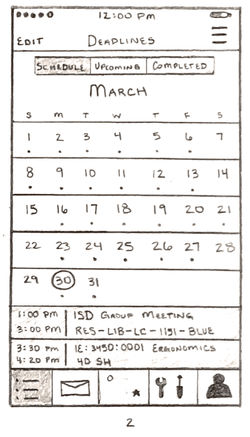 12:00 PM
EDIT DEADLINES
SCHEDULE UPCOMING COMPLETED
MARCH
S M T W T F S
1 2 3 4 5 6 7
8 9 10 11 12 13 14
15 16 17 18 19 20 21
22 23 24 25 26 27 28
29 30 31
1:00 PM ISD GROUP MEETING
3:00 PM RES-LIB-LC-1191-BLUE
3:30 PM IE:3450:0001 ERGONOMICS
4:20 PM 40 SH
2